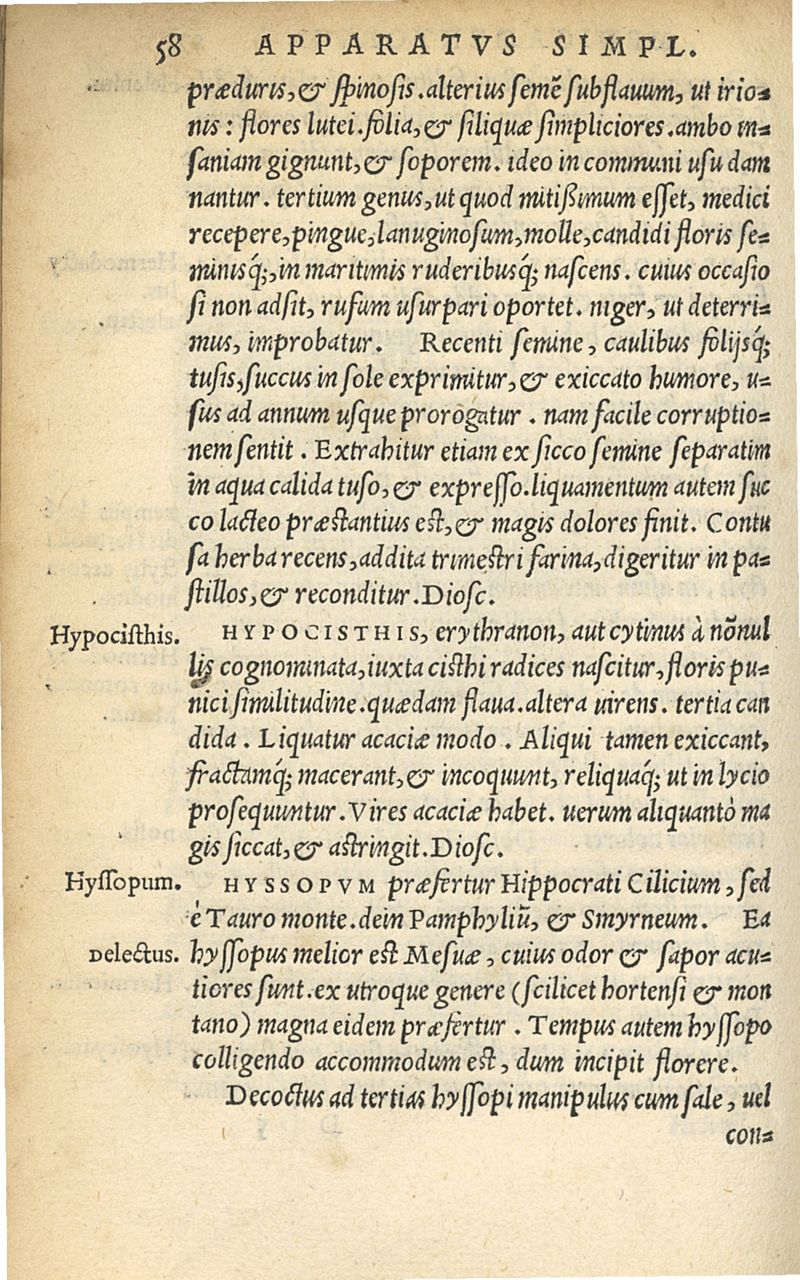 58 APPARATVS SIMPL.
præduris, & spinosis. alterius semẽ subflauum, ut irio-
nis: flores lutei. folia, & siliquæ simpliciores. ambo in-
saniam gignunt, & soporem. ideo in communi usu dam
nantur. tertium genus, ut quod mitißimum esset, medici
recepere, pingue, lanuginosum, molle, candidi floris se-
minisq́;, in maritimis ruderibusq́; nascens. cuius occasio
si non adsit, rufum usurpari oportet. niger, ut deterri-
mus, improbatur. Recenti semine, caulibus folijsq́;
tusis, succus in sole exprimitur, & exiccato humore, u-
sus ad annum usque prorogatur. nam facile corruptio-
nem sentit. Extrahitur etiam ex sicco semine separatim
in aqua calida tuso, & expresso. liquamentum autem suc
co lacteo præstantius est, & magis dolores finit. Contu
sa herba recens, addita trimestri farina, digeritur in pa-
stillos, & reconditur. Diosc.
Hypocisthis. HYPOCISTHIS, erythranon, aut cytinus à nõnul
lis cognominata, iuxta cisthi radices nascitur, floris pu-
nici similitudine. quædam flaua. altera uirens. tertia can
dida. Liquatur acaciæ modo. Aliqui tamen exiccant,
fractamq́; macerant, & incoquunt, reliquaq́; ut in lycio
prosequuntur. Vires acaciæ habet. uerum aliquantò ma
gis siccat, & astringit. Diosc.
Hyssopum. HYSSOPVM præfertur Hippocrati Cilicium, sed
è Tauro monte. dein Pamphyliũ, & Smyrneum. Ea
Delectus. hyssopus melior est Mesuæ, cuius odor & sapor acu-
tiores sunt. ex utroque genere (scilicet hortensi & mon
tano) magna eidem præfertur. Tempus autem hyssopo
colligendo accommodum est, dum incipit florere.
Decoctus ad tertias hyssopi manipulus cum sale, uel
con-